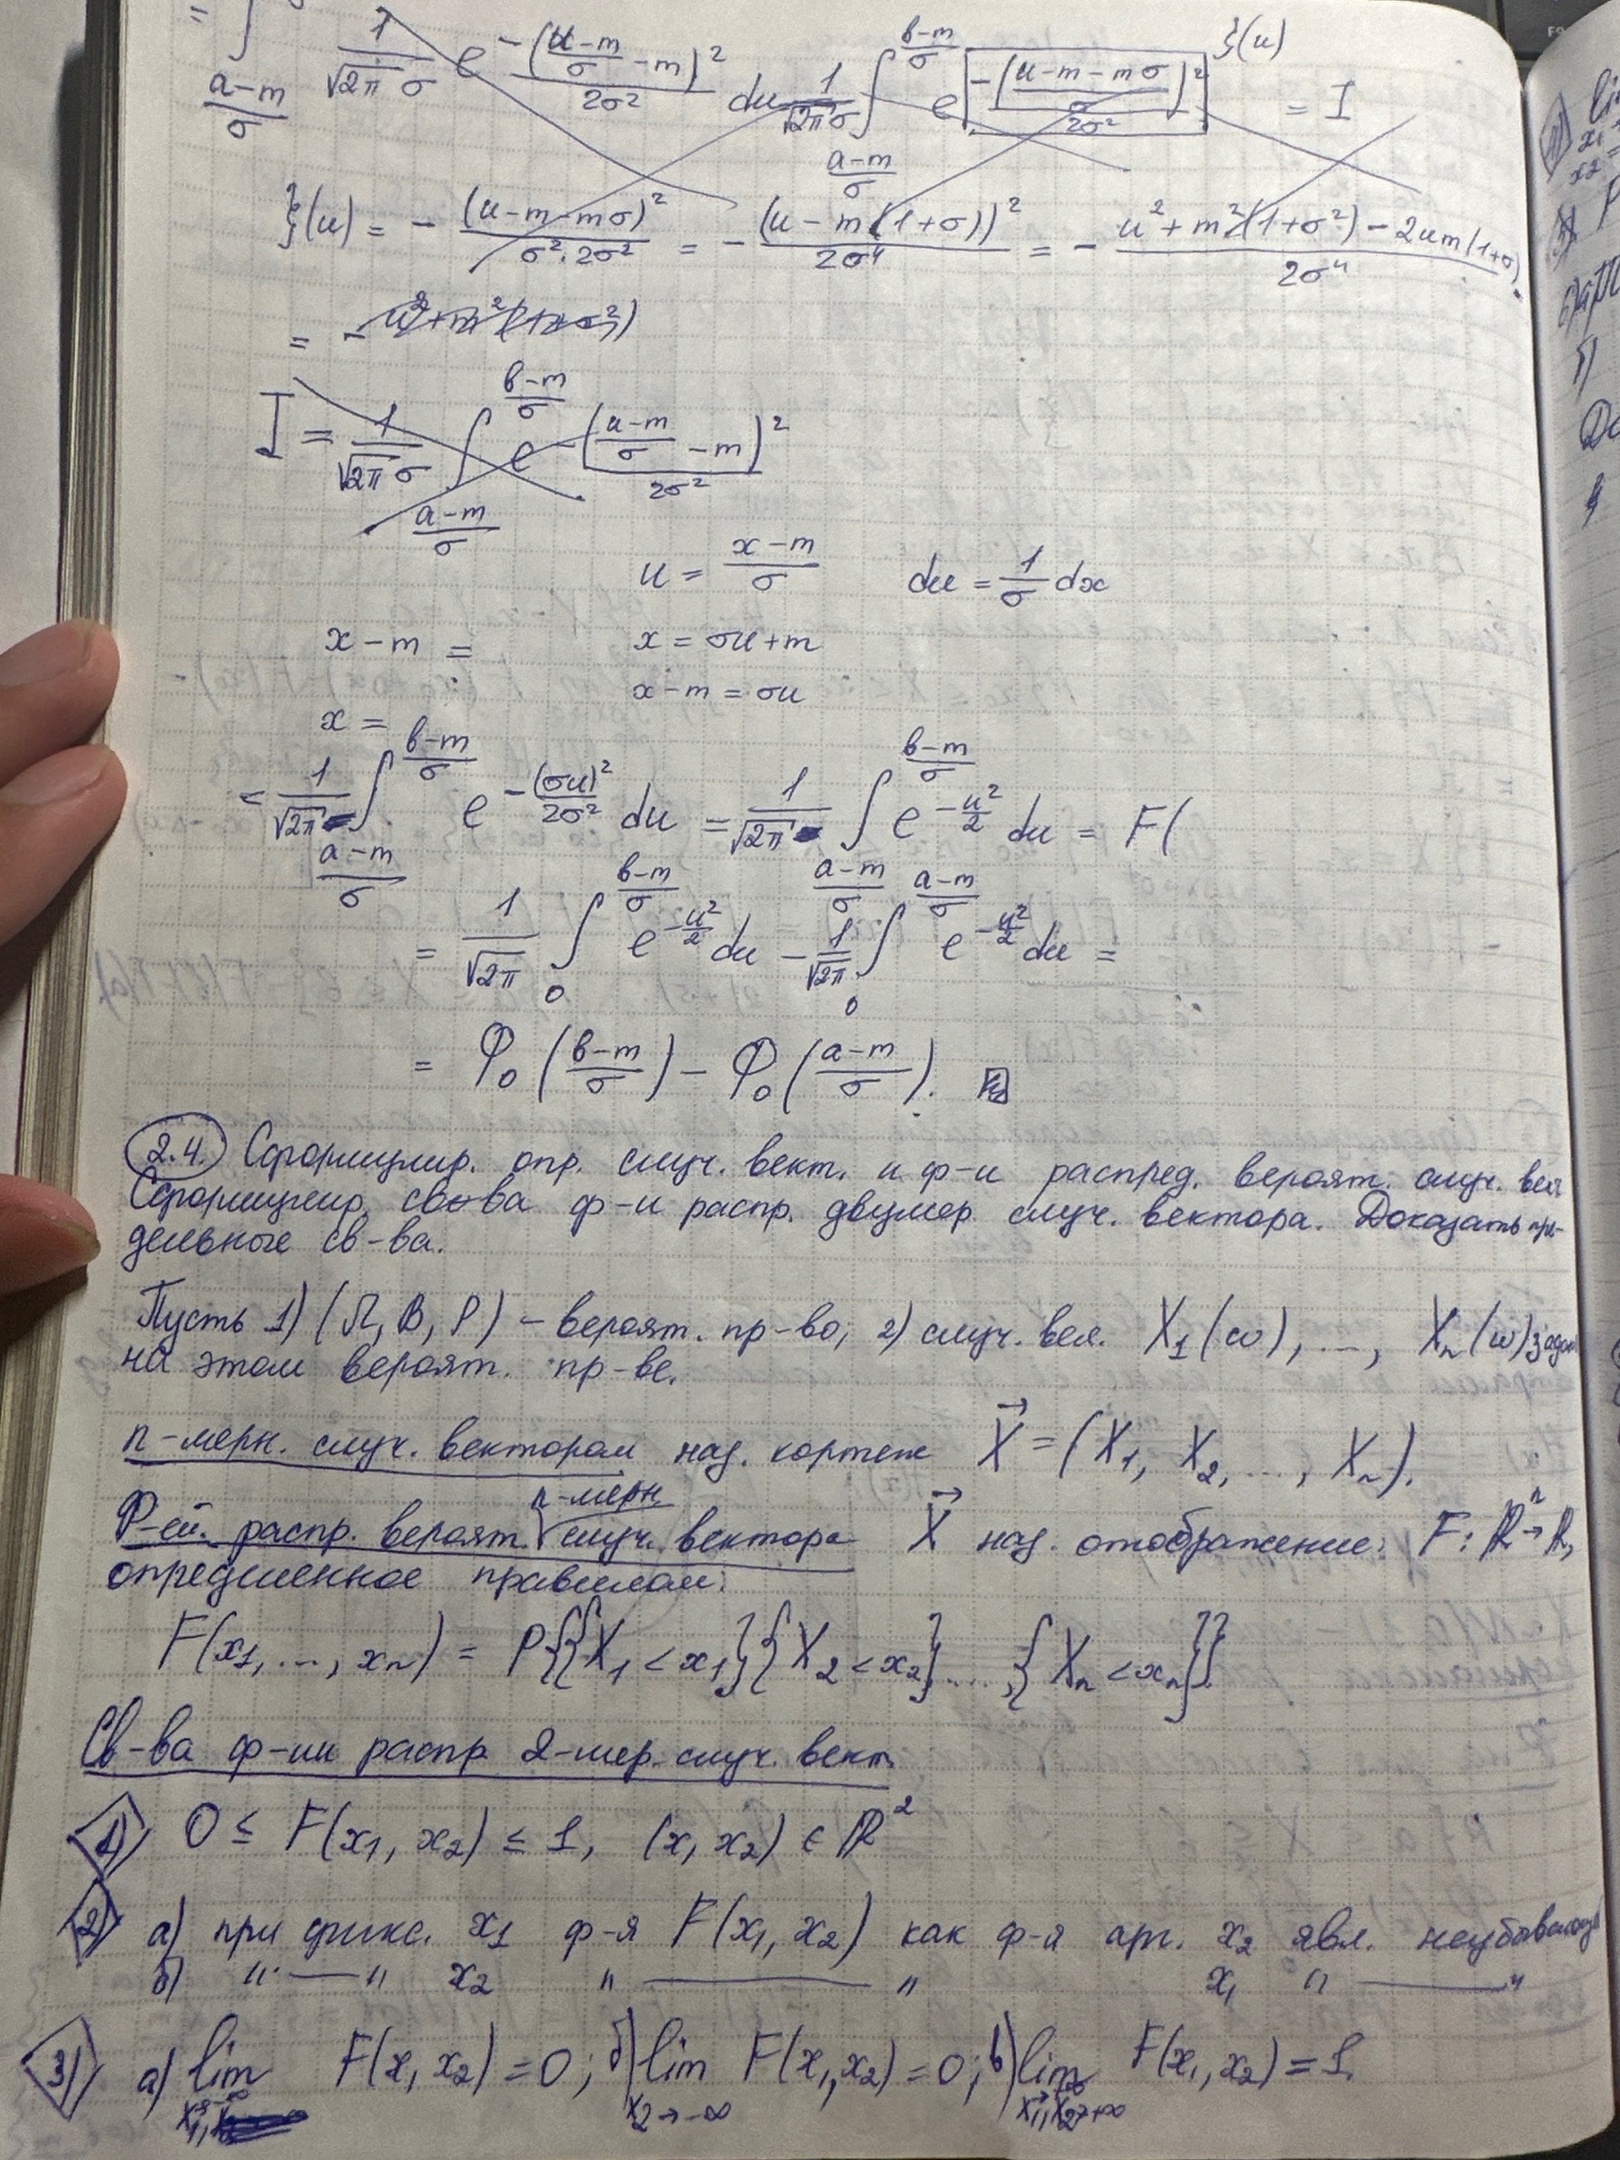 = ∫ 1/(√2π σ) e^(-((u-m)/σ - m)²/(2σ²)) du 1/(√2π σ) ∫ e^[-((u-m-mσ)/σ)²/(2σ²)] ξ(u) = I
(a-m)/σ (a-m)/σ (в-m)/σ
ξ(u) = - (u-m-mσ)²/(σ²·2σ²) = - (u-m(1+σ))²/(2σ⁴) = - (u²+m²(1+σ²)-2um(1+σ))/(2σ⁴)
= - u²+m²(1+σ²)
I = 1/(√2π σ) ∫_{(a-m)/σ}^{(в-m)/σ} e^(-((u-m)/σ - m)²/(2σ²))
u = (x-m)/σ du = 1/σ dx
x-m = x = σu+m
x-m = σu
x =
= 1/√2π ∫_{(a-m)/σ}^{(в-m)/σ} e^(-(σu)²/(2σ²)) du = 1/√2π ∫_{(a-m)/σ}^{(в-m)/σ} e^(-u²/2) du = F(
= 1/√2π ∫_0^{(в-m)/σ} e^(-u²/2) du - 1/√2π ∫_0^{(a-m)/σ} e^(-u²/2) du =
= Φ₀((в-m)/σ) - Φ₀((a-m)/σ).
2.4. Сформулир. опр. случ. вект. и ф-и распред. вероят. случ. век
Сформулир. св-ва ф-и распр. двумер. случ. вектора. Доказать пре-
дельные св-ва.
Пусть 1) (Ω, B, P) – вероят. пр-во; 2) случ. вел. X₁(ω), ..., Xₙ(ω) задан
на этом вероят. пр-ве.
n-мерн. случ. вектором наз. кортеж X⃗ = (X₁, X₂, ..., Xₙ).
Ф-ей распр. вероят. n-мерн. случ. вектора X⃗ наз. отображение: F: ℝⁿ→ℝ,
определенное правилом:
F(x₁, ..., xₙ) = P{{X₁<x₁}{X₂<x₂}, ..., {Xₙ<xₙ}}
Св-ва ф-ии распр. 2-мер. случ. вект.
1) 0 ≤ F(x₁, x₂) ≤ 1, (x, x₂) ∈ ℝ²
2) а) при фикс. x₁ ф-я F(x₁, x₂) как ф-я арг. x₂ явл. неубывающ
б) " — " x₂ " — " x₁ " — "
3) а) lim_{x₁→-∞} F(x, x₂) = 0; б) lim_{x₂→-∞} F(x₁, x₂) = 0; в) lim_{x₁→+∞, x₂→+∞} F(x₁, x₂) = 1.